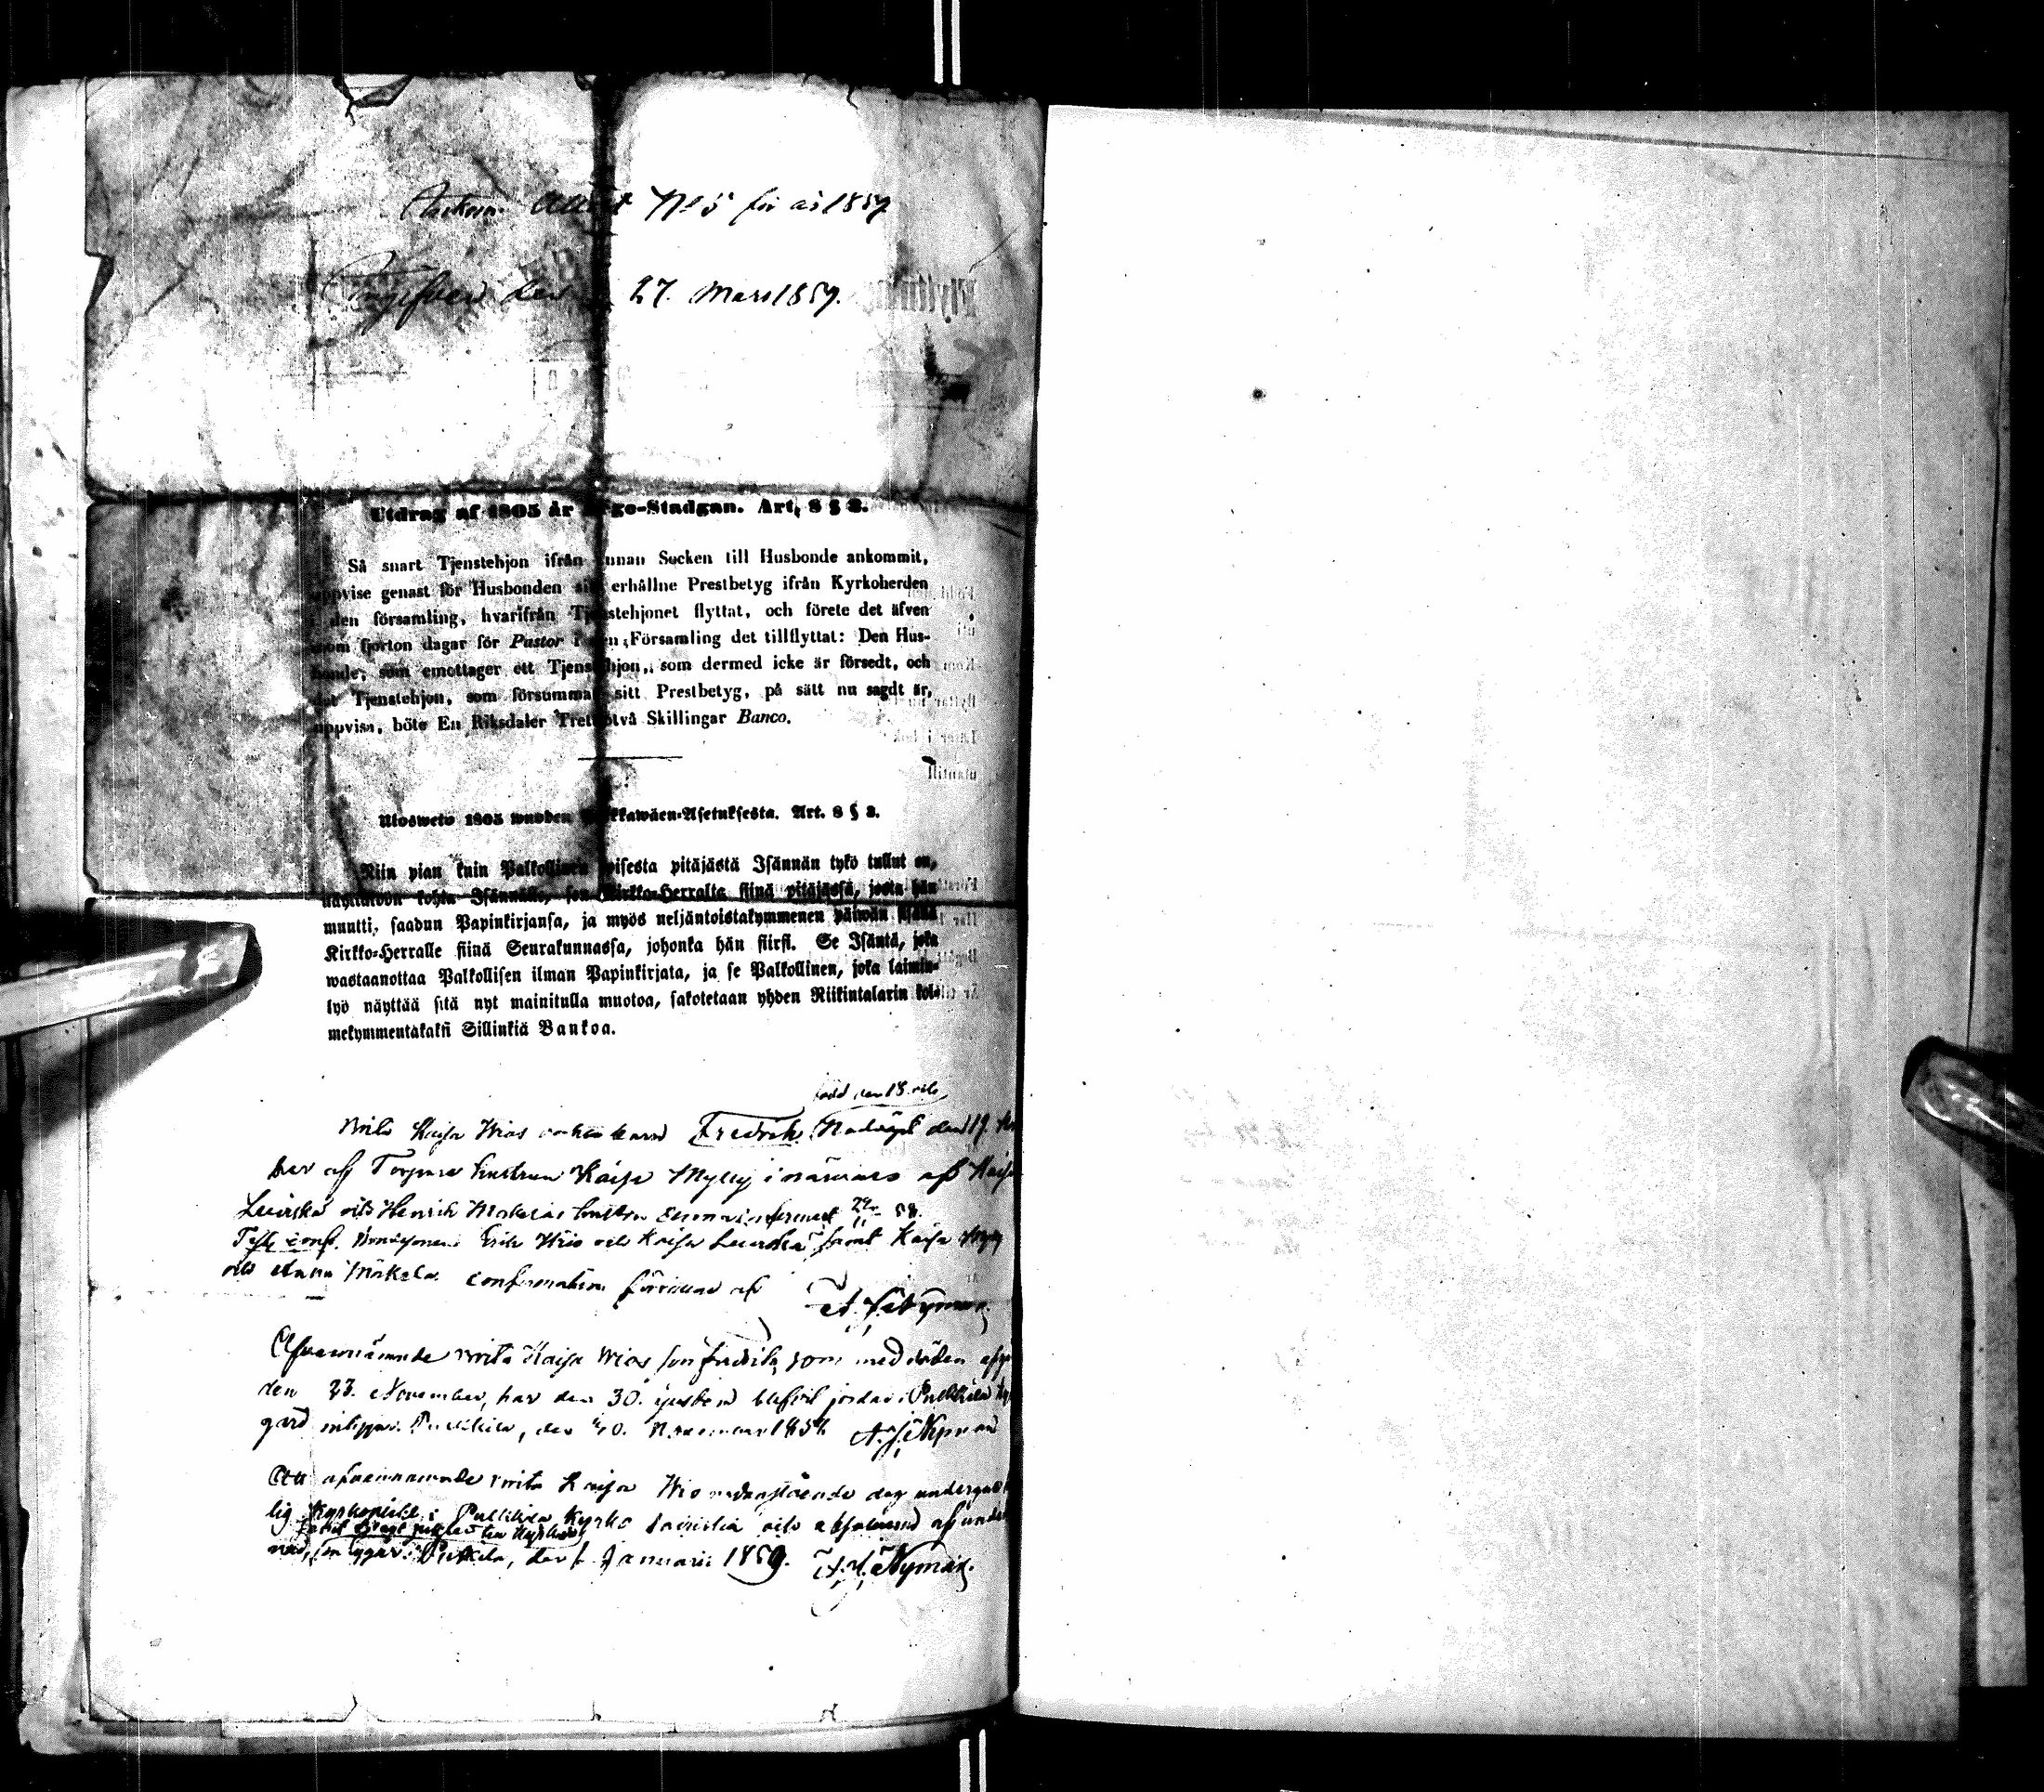 Attest No 5 för år 1859
Ingifven den 27. Mars 1859.
Utdrag af 1805 års Lego-Stadgan. Art. 8 § 3.
Så snart Tjenstehjon ifrån annan Socken till Husbonde ankommit,
uppvise genast för Husbonden sitt erhållne Prestbetyg ifrån Kyrkoherden
i den församling, hvarifrån Tjenstehjonet flyttat, och förete det äfven
inom fjorton dagar för Pastor i den Församling det tillflyttat: Den Hus-
bonde, som emottager ett Tjenstehjon, som dermed icke är försedt, och
det Tjenstehjon, som försummar sitt Prestbetyg, på sätt nu sagdt är,
uppvisa, böte En Riksdaler Trettiotvå Skillingar Banco.
Ulosweto 1805 wuoden Palkkawäen-Asetuksesta. Art. 8 § 3.
Niin pian kuin Palkollinen toisesta pitäjästä Isännän tykö tullut on,
näyttäköön kohta Isännälle, sen Kirkko-Herralta siinä pitäjässä, josta hän
muutti, saadun Papinkirjansa, ja myös neljäntoistakymmenen päiwän sisällä
Kirkko-Herralle siinä Seurakunnassa, johonka hän siirsi. Se Isäntä, joka
wastaanottaa Palkollisen ilman Papinkirjata, ja se Palkollinen, joka laimin-
lyö näyttää sitä nyt mainitulla muotoa, sakotetaan yhden Riikintalarin kol-
mekymmentäkaksi Sillinkiä Bankoa.
född den 18. och
Brita Kaisa Wios barn Fredrik Nöddöpt den 19.
ber af Torpare hustrun Kaisa Mylly i närvaro af Kaisa
Leiviskä och Henrik Mäkeläs hustru
Test. conf. Erik Wio och Kaisa Leiviskä samt Kaisa Mylly
och Anna Mäkelä. confirmation förrättad af
A. J. Nyman.
Ofvannämnde Brita Kaisa Wios son Fredrik, som med döden afgått
den 23. November, har den 30. ejusdem blifvit jordad i Pulkkila
gård intygar. Pulkkila, den 30. November 1858 A. J. Nyman
Att ofvannämnde Brita Kaisa Wio nedanstående dag undergått
lig Kyrkoplikt i Pulkkila Kyrko Sacristia och absolverad af
intygar. Pulkkila, den 1. Januarii 1859. A. J. Nyman.